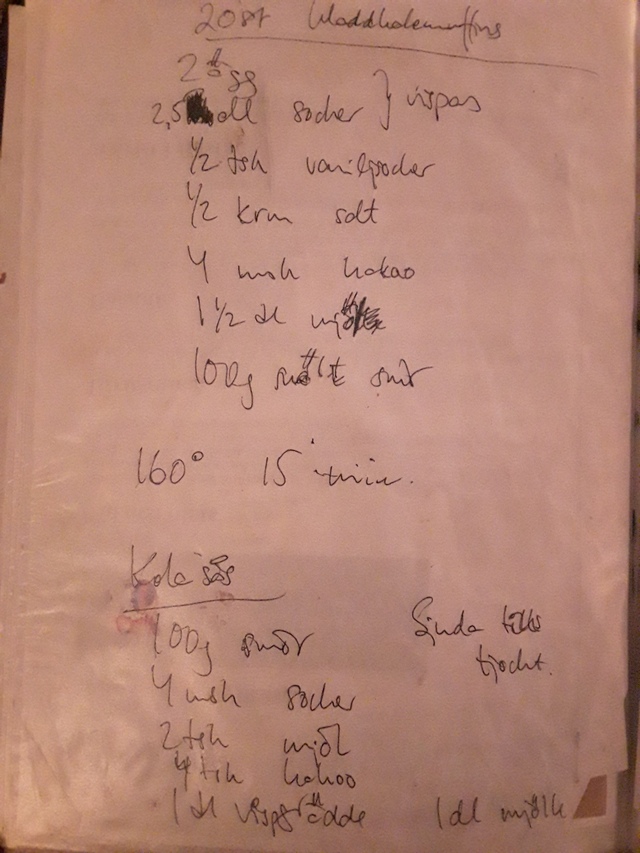 20 st kladdkakemuffins
2 ägg
2,5 dl socker } vispas
1/2 tsk vaniljsocker
1/2 krm salt
4 msk kakao
1 1/2 dl mjöl
100g smält smör
160° 15 min.
Kola sås
100g smör
Sjuda tills
tjockt.
4 msk socker
2 tsk mjöl
4 tsk kakao
1 dl vispgrädde 1 dl mjölk